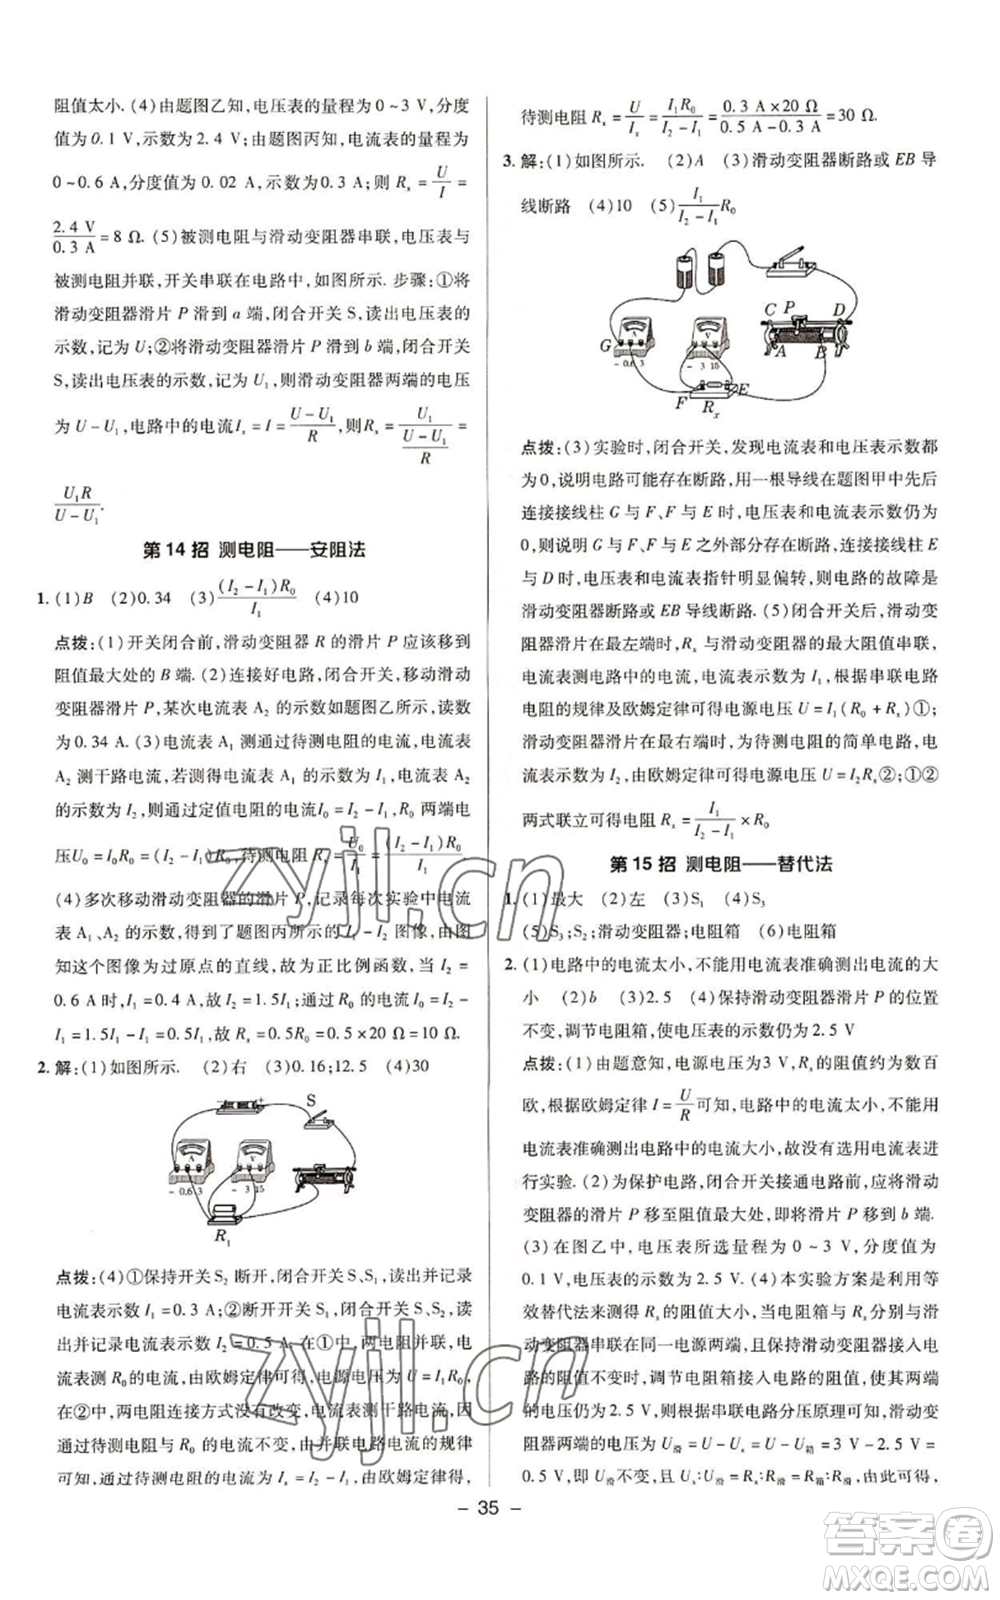 阻值太小. (4)由题图乙知,电压表的量程为0~3 V,分度
值为0.1 V,示数为2.4 V;由题图丙知,电流表的量程为
0~0.6 A,分度值为0.02 A,示数为0.3 A;则 Rₓ = U/I =
2.4 V/0.3 A = 8 Ω. (5)被测电阻与滑动变阻器串联,电压表与
被测电阻并联,开关串联在电路中,如图所示. 步骤:①将
滑动变阻器滑片 P 滑到 a 端,闭合开关S,读出电压表的
示数,记为 U;②将滑动变阻器滑片 P 滑到 b 端,闭合开关
S,读出电压表的示数,记为 U₁,则滑动变阻器两端的电压
为 U-U₁,电路中的电流Iₓ=I=(U-U₁)/R,则Rₓ=U₁/((U-U₁)/R)=
U₁R/(U-U₁).
第14招 测电阻——安阻法
1. (1)B (2)0.34 (3)(I₂-I₁)R₀/I₁ (4)10
点拨:(1)开关闭合前,滑动变阻器 R 的滑片 P 应该移到
阻值最大处的 B 端. (2)连接好电路,闭合开关,移动滑动
变阻器滑片 P,某次电流表 A₂ 的示数如题图乙所示,读数
为0.34 A. (3)电流表 A₁ 测通过待测电阻的电流,电流表
A₂ 测干路电流,若测得电流表 A₁ 的示数为 I₁,电流表 A₂
的示数为 I₂,则通过定值电阻的电流I₀=I₂-I₁,R₀ 两端电
压U₀=I₀R₀=(I₂-I₁)R₀,待测电阻Rₓ=U₀/I₁=(I₂-I₁)R₀/I₁.
(4)多次移动滑动变阻器的滑片 P,记录每次实验中电流
表 A₁、A₂ 的示数,画出题图丙所示的 I₂-I₁ 图像,由图
知这是一条过原点的直线,故为正比例函数,当 I₂=
0.6 A 时,I₂=1.5I₁;通过 R₀ 的电流 I₀=I₂-
I₁=1.5I₁-I₁=0.5I₁,故 Rₓ=0.5R₀=0.5×20 Ω=10 Ω.
2. 解:(1)如图所示. (2)右 (3)0.16;12.5 (4)30
S
A
V
-0.6 3
-3 15
R₁
点拨:(4)①保持开关 S₂ 断开,闭合开关S、S₁,读出并记录
电流表示数 I₁=0.3 A;②断开开关 S₁,闭合开关 S、S₂,读
出并记录电流表示数 I₂=0.5 A. 在①中,两电阻并联,电
流表测 R₀的电流,由欧姆定律可得,电源电压 U=I₁R₀,
在②中,两电阻连接方式没有改变,电流表测干路电流,通
过待测电阻与 R₀ 的电流不变,由并联电路电流的规律
可知,通过待测电阻的电流为 Iₓ=I₂-I₁,由欧姆定律得,
待测电阻 Rₓ=U/Iₓ=I₁R₀/(I₂-I₁)=(0.3 A×20 Ω)/(0.5 A-0.3 A)=30 Ω.
3. 解:(1)如图所示. (2)A (3)滑动变阻器断路或EB导
线断路 (4)10 (5)I₁/(I₂-I₁)R₀
C P D
G
A
V
A B
-0.6 3
-3 15
F Rₓ E
点拨:(3)实验时,闭合开关,发现电流表和电压表示数都
为0,说明电路可能存在断路,用一根导线在题图甲中先后
连接接线柱 G 与 F、F 与 E,电压表和电流表示数仍为
0,说明 G 与 F、F 与 E 之外部分存在断路,当连接接线柱 E
与 D 时,电压表和电流表指针明显偏转,则电路的故障是
滑动变阻器断路或 EB 导线断路. (5)闭合开关后,滑动变
阻器滑片在最左端时,Rₓ 与滑动变阻器的最大阻值串联,
电流表测电路中的电流,电流表示数为 I₁,根据串联电路
电阻的规律及欧姆定律可得电源电压 U=I₁(R₀+Rₓ)①;
滑动变阻器滑片在最右端时,为待测电阻的简单电路,电
流表示数为 I₂,由欧姆定律可得电源电压 U=I₂Rₓ②;①②
两式联立可得电阻 Rₓ=I₁/(I₂-I₁)×R₀
第15招 测电阻——替代法
1. (1)最大 (2)左 (3)S₁ (4)S₃
(5)S₃;S₂;滑动变阻器;电阻箱 (6)电阻箱
2. (1)电路中的电流太小,不能用电流表准确测出电流的大
小 (2)b (3)2.5 (4)保持滑动变阻器滑片 P 的位置
不变,调节电阻箱,使电压表的示数仍为2.5 V
点拨:(1)由题意知,电源电压为3 V,Rₓ的阻值约为数百
欧,根据欧姆定律 I=U/R可知,电路中的电流太小,不能用
电流表准确测出电路中的电流大小,故没有选用电流表进
行实验. (2)为保护电路,闭合开关接通电路前,应将滑动
变阻器的滑片 P 移至阻值最大处,即将滑片 P 移到 b 端.
(3)在图乙中,电压表所选的量程为0~3 V,分度值为
0.1 V,电压表的示数为2.5 V. (4)本实验方案是利用等
效替代法来测得 Rₓ的阻值大小,当电阻箱与 Rₓ分别与滑
动变阻器串联在同一电源两端,且保持滑动变阻器接入电
路的阻值不变时,调节电阻箱接入电路的阻值,使其两端
的电压仍为2.5 V,根据串联电路分压原理可知,滑动变
阻器两端的电压为 U滑=U-Uₓ=U-U箱=3 V-2.5 V=
0.5 V,即U滑不变,且 Uₓ=U箱=2.5 V,由此可得,
- 35 -
zyjl.cn
zyjl.cn
答案卷
MXQE.COM